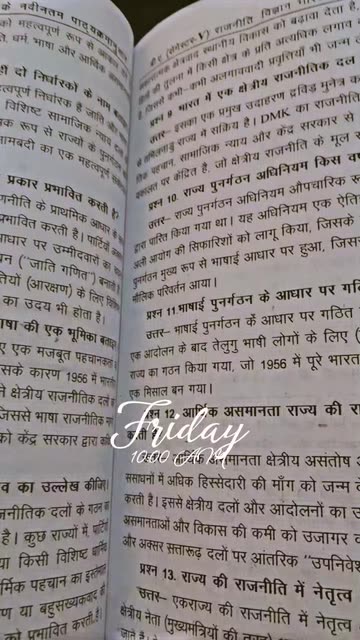 के नवीनतम पाठ्यक्रमानु
को महत्वपूर्ण रूप से
ति, धर्म, भाषा और आर्थिक
ही दो निर्धारकों के नाम
महत्वपूर्ण निर्धारक हैं जाति और
विशिष्ट सामाजिक न्याय
क रूप से राज्यों के पुनर्गठन
लामबंदी का एक महत्वपूर्ण
प्रकार प्रभावित करती है?
जनीति के प्राथमिक आधार
प्रभावित करती है। पार्टियाँ
आधार पर उम्मीदवारों का
न ("जाति गणित") बनाती
तियों (आरक्षण) के लिए
का उदय भी होता है।
भाषा की एक भूमिका
ए एक मजबूत पहचानका
सके कारण 1956 में भारत
ने क्षेत्रीय राजनीतिक दलों
जिससे भाषा राजनीतिक
को केंद्र सरकार द्वारा
व का उल्लेख कीजिए।
जनीतिक दलों के गठन का
है। कुछ राज्यों में पार्टियाँ
या किसी विशिष्ट धार्मिक
र्मिक पहचान का इस्तेमाल
ण या बहुसंख्यकवाद की
को प्रभावित करती है।
बी.ए. (सेमेस्टर-V) राजनीति विज्ञान
स्थानीय विकास को बढ़ावा देता है
की तुलना में किसी क्षेत्र के प्रति अत्यधिक लगाव
जिससे कभी-कभी अलगाववादी प्रवृत्तियाँ भी जन्म
प्रश्न 9. भारत में एक क्षेत्रीय राजनीतिक दल
उत्तर– इसका एक प्रमुख उदाहरण द्रविड़ मुनेत्र
राज्य में सक्रिय है। DMK का राजनीति
पहचान, सामाजिक न्याय और केंद्र सरकार से
पर केंद्रित है, जो क्षेत्रीय राजनीति के मूल
प्रश्न 10. राज्य पुनर्गठन अधिनियम किस
उत्तर– राज्य पुनर्गठन अधिनियम औपचारिक रू
द्वारा पारित किया गया था। यह अधिनियम एक ऐति
अली आयोग की सिफारिशों को लागू किया, जिसके
पुनर्गठन मुख्य रूप से भाषाई आधार पर हुआ, जिस
मौलिक परिवर्तन आया।
प्रश्न 11.भाषाई पुनर्गठन के आधार पर गठि
उत्तर– भाषाई पुनर्गठन के आधार पर गठित
एक आंदोलन के बाद तेलुगु भाषी लोगों के लिए
राज्य का गठन किया गया, जो 1956 में पूरे भारत
एक मिसाल बन गया।
प्रश्न 12. आर्थिक असमानता राज्य की रा
करती है
असमानता क्षेत्रीय असंतोष
संसाधनों में अधिक हिस्सेदारी की माँग को जन्म दे
करती है। इससे क्षेत्रीय दलों और आंदोलनों का उ
असमानताओं और विकास की कमी को उजागर क
और अक्सर सत्तारूढ़ दलों पर आंतरिक "उपनिवेश
प्रश्न 13. राज्य की राजनीति में नेतृत्व
उत्तर– एकराज्य की राजनीति में नेतृत्व
क्षेत्रीय नेता (मुख्यमंत्रियों की
Friday
10:00 AM